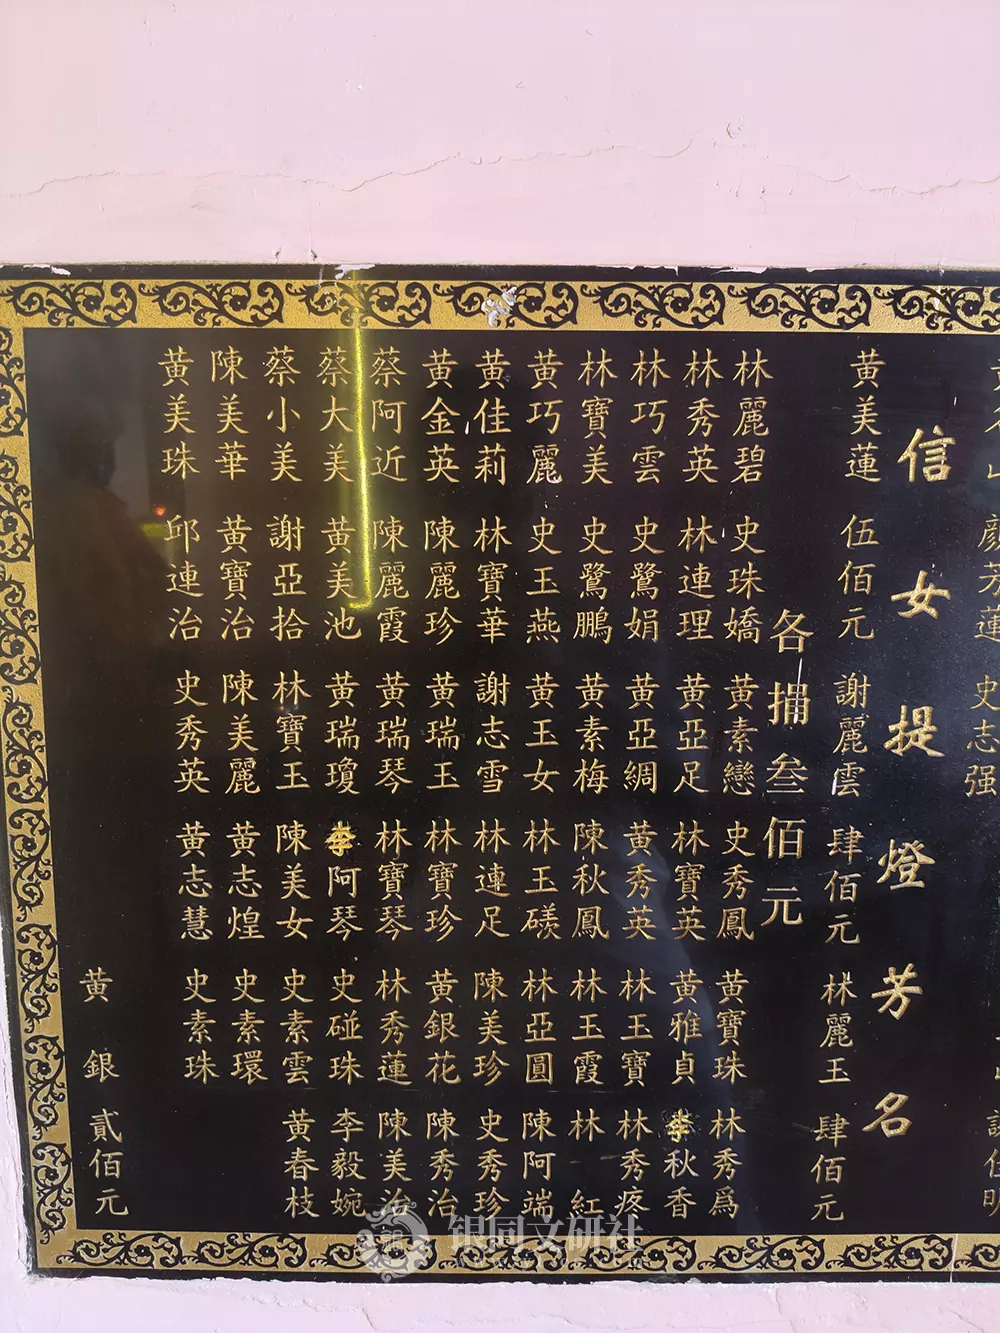 顏芳蓮 史志强
信女提燈芳名
黃美蓮 伍佰元 謝麗雲 肆佰元 林麗玉 肆佰元
各捐叁佰元
林麗碧 史珠嬌 黃素戀 史秀鳳 黃寶珠 林秀爲
林秀英 林連理 黃亞足 林寶英 黃雅貞 李秋香
林巧雲 史鷺娟 黃亞綢 黃秀英 林玉寶 林秀疼
林寶美 史鷺鵬 黃素梅 陳秋鳳 林玉霞 林紅
黃巧麗 史玉燕 黃玉女 林玉磺 林亞圓 陳阿端
黃佳莉 林寶華 謝志雪 林連足 陳美珍 史秀珍
黃金英 陳麗珍 黃瑞玉 林寶珍 黃銀花 陳秀治
蔡阿近 陳麗霞 黃瑞琴 林寶琴 林秀蓮 陳美治
蔡大美 黃美池 黃瑞瓊 李阿琴 史碰珠 李毅婉
蔡小美 謝亞拾 林寶玉 陳美女 史素雲 黃春枝
陳美華 黃寶治 陳美麗 黃志煌 史素環
黃美珠 邱連治 史秀英 黃志慧 史素珠
黃銀 貳佰元
银同文研社